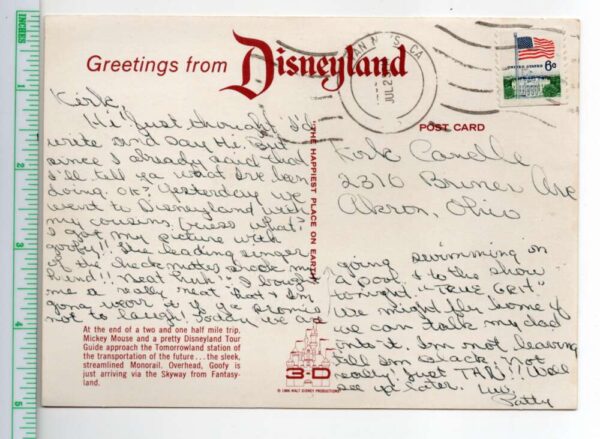 INCHES
1
2
3
4
5
Greetings from Disneyland
VAN NUYS, CA
JUL 23
UNITED STATES 6¢
POST CARD
"THE HAPPIEST PLACE ON EARTH"
Kirk,
Hi just thought I'd
write and say Hi. But
since I already said that
I'll tell ya what I've been
doing. OK? Yesterday we
went to Disneyland with
my cousins. Guess what -
I got my picture with
goofy!! The leading singer
of the shook my
hand!! Neat huh. I bought
me a really "neat" hat & I'm
gona wear it if ya promise
not to laugh! Today we are
Kirk
2316 Bruner Ave
Akron, Ohio
going swimming in
a pool & to the show
tonight "TRUE GRIT".
We might fly home if
we can talk my dad
into it. I'm not leaving
till I'm black. Not
really just TAN!! Well
see ya later. Luv,
Patty
At the end of a two and one half mile trip,
Mickey Mouse and a pretty Disneyland Tour
Guide approach the Tomorrowland station of
the transportation of the future . . . the sleek,
streamlined Monorail. Overhead, Goofy is
just arriving via the Skyway from Fantasy-
land.
3-D
© WALT DISNEY PRODUCTIONS